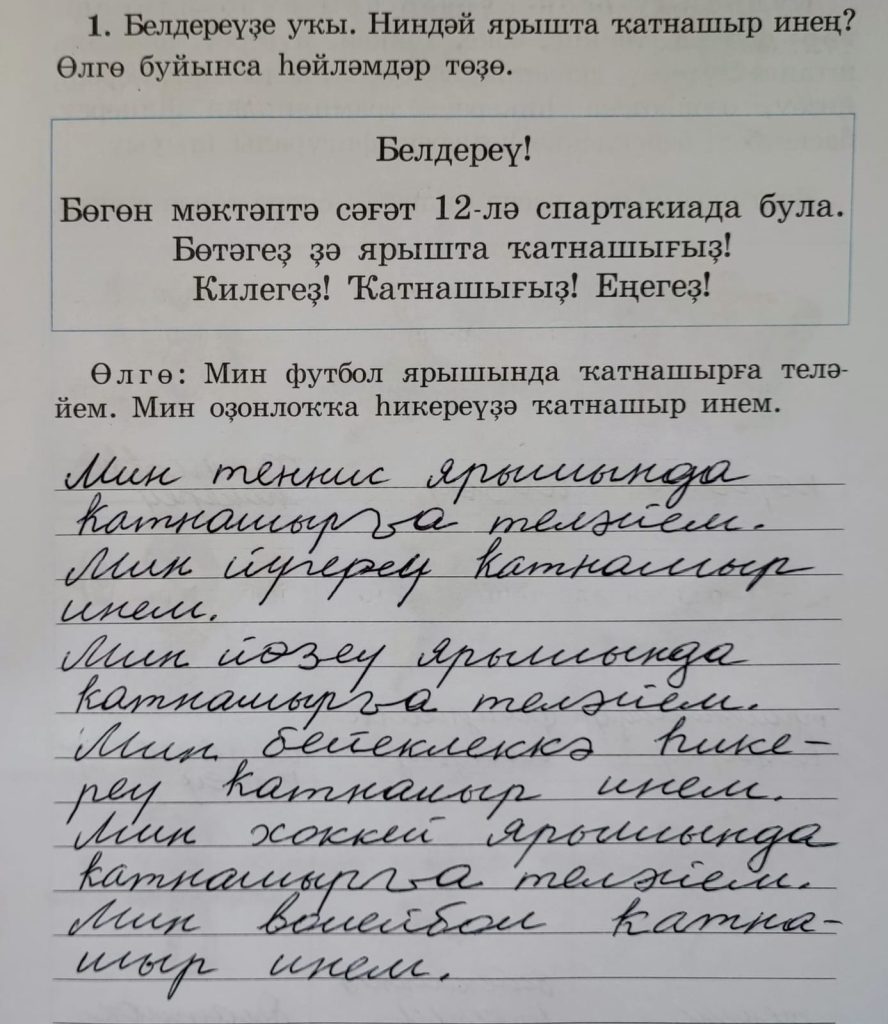 1. Белдереүҙе уҡы. Ниндәй ярышта ҡатнашыр инең?
Өлгө буйынса һөйләмдәр төҙө.
Белдереү!
Бөгөн мәктәптә сәғәт 12-лә спартакиада була.
Бөтәгеҙ ҙә ярышта ҡатнашығыҙ!
Килегеҙ! Ҡатнашығыҙ! Еңегеҙ!
Өлгө: Мин футбол ярышында ҡатнашырға телә-
йем. Мин оҙонлоҡҡа һикереүҙә ҡатнашыр инем.
Мин теннис ярышында
ҡатнашырға теләйем.
Мин йүгереү ҡатнашыр
инем.
Мин йөҙеү ярышында
ҡатнашырға теләйем.
Мин бейеклеккә һике-
реү ҡатнашыр инем.
Мин хоккей ярышында
ҡатнашырға теләйем.
Мин волейбол ҡатна-
шыр инем.